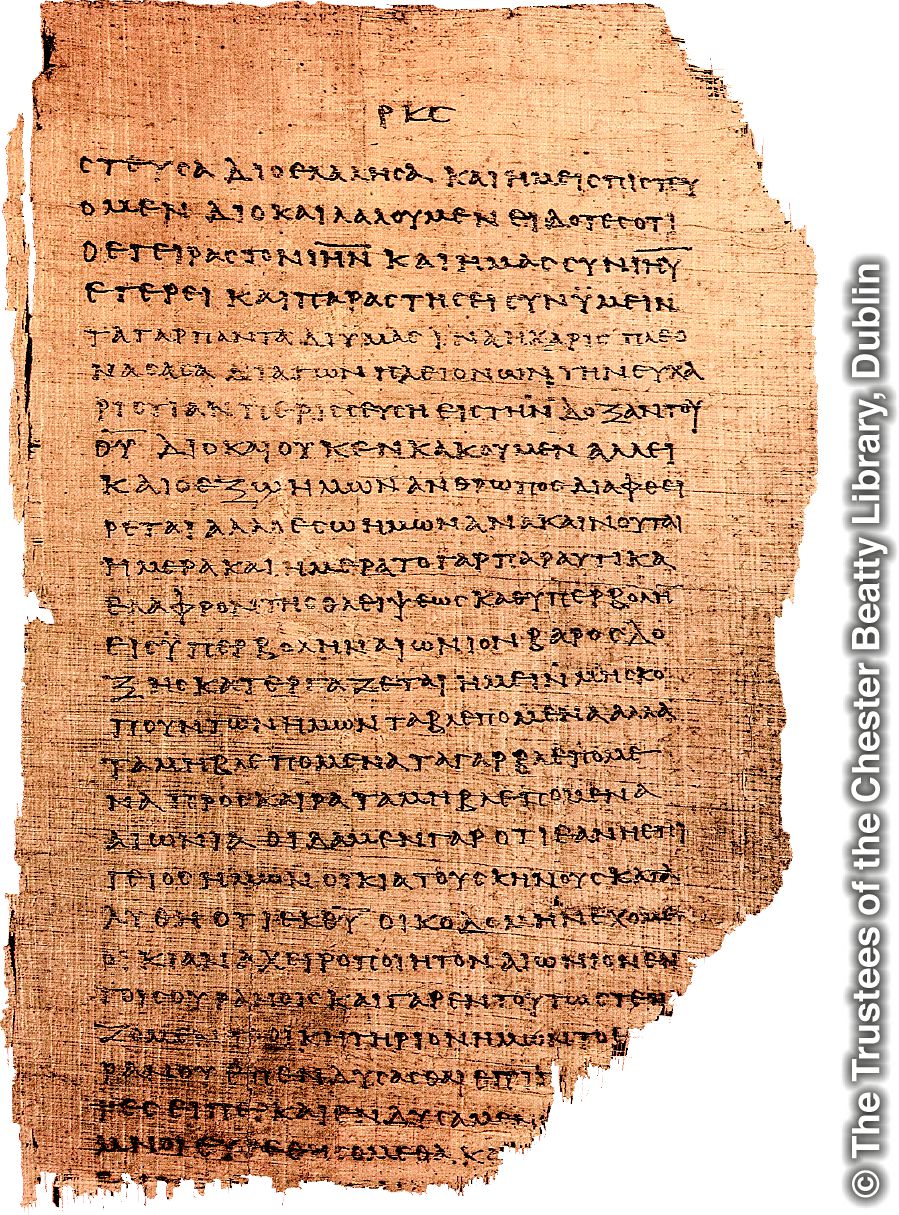 ΡΚϚ
ϹΤΕΥϹΑ ΔΙΟΕΛΑΛΗϹΑ ΚΑΙΗΜΕΙϹΠΙϹΤΕΥ
ΟΜΕΝ ΔΙΟΚΑΙΛΑΛΟΥΜΕΝ ΕΙΔΟΤΕϹΟΤΙ
ΟΕΓΕΙΡΑϹΤΟΝΙ̅Η̅Ν̅ ΚΑΙΗΜΑϹϹΥΝΙ̅Η̅Υ̅
ΕΓΕΡΕΙ ΚΑΙΠΑΡΑϹΤΗϹΕΙϹΥΝΫΜΕΙΝ
ΤΑΓΑΡΠΑΝΤΑΔΙΥΜΑϹΙΝΑΗΧΑΡΙϹΠΛΕΟ
ΝΑϹΑϹΑΔΙΑΤΩΝΠΛΕΙΟΝΩΝΤΗΝΕΥΧΑ
ΡΙϹΤΙΑΝΠΕΡΙϹϹΕΥϹΗΕΙϹΤΗΝΔΟΞΑΝΤΟΥ
Θ̅Υ̅ ΔΙΟΚΑΙΟΥΚΕΝΚΑΚΟΥΜΕΝΑΛΛΕΙ
ΚΑΙΟΕΞΩΗΜΩΝΑΝΘΡΩΠΟϹΔΙΑΦΘΕΙ
ΡΕΤΑΙΑΛΛΑΟΕϹΩΗΜΩΝΑΝΑΚΑΙΝΟΥΤΑΙ
ΗΜΕΡΑΚΑΙΗΜΕΡΑΤΟΓΑΡΠΑΡΑΥΤΙΚΑ
ΕΛΑΦΡΟΝΤΗϹΘΛΕΙΨΕΩϹΚΑΘΥΠΕΡΒΟΛΗΝ
ΕΙϹΫΠΕΡΒΟΛΗΝΑΙΩΝΙΟΝΒΑΡΟϹΔΟ
ΞΗϹΚΑΤΕΡΓΑΖΕΤΑΙΗΜΕΙΝΜΗϹΚΟ
ΠΟΥΝΤΩΝΗΜΩΝΤΑΒΛΕΠΟΜΕΝΑΑΛΛΑ
ΤΑΜΗΒΛΕΠΟΜΕΝΑΤΑΓΑΡΒΛΕΠΟΜΕ
ΝΑΠΡΟϹΚΑΙΡΑΤΑΜΗΒΛΕΠΟΜΕΝΑ
ΑΙΩΝΙΑΟΙΔΑΜΕΝΓΑΡΟΤΙΕΑΝΗΕΠΙ
ΓΕΙΟϹΗΜΩΝΟΙΚΙΑΤΟΥϹΚΗΝΟΥϹΚΑΤΑ
ΛΥΘΗΟΤΙΕΚΘ̅Υ̅ ΟΙΚΟΔΟΜΗΝΕΧΟΜΕ
ΟΙΚΙΑΝΑΧΕΙΡΟΠΟΙΗΤΟΝΑΙΩΝΙΟΝΕΝ
ΤΟΙϹΟΥΡΑΝΟΙϹΚΑΙΓΑΡΕΝΤΟΥΤΩϹΤΕΝ
ΖΟΜΕ ΤΟΟΙΚΗΤΗΡΙΟΝΗΜΩΝΤΟ
ΡΑΝΟΥΕΠΕΝΔΥϹΑϹΘΑΙΕΠΙΠ
ΤΕϹΕΙΠΕΡΚΑΙΕΝΔΥϹΑΜΕΝ
ΜΝΟΙΕΥΡΕΘΗϹΟΜΕΘΑΚ
© The Trustees of the Chester Beatty Library, Dublin